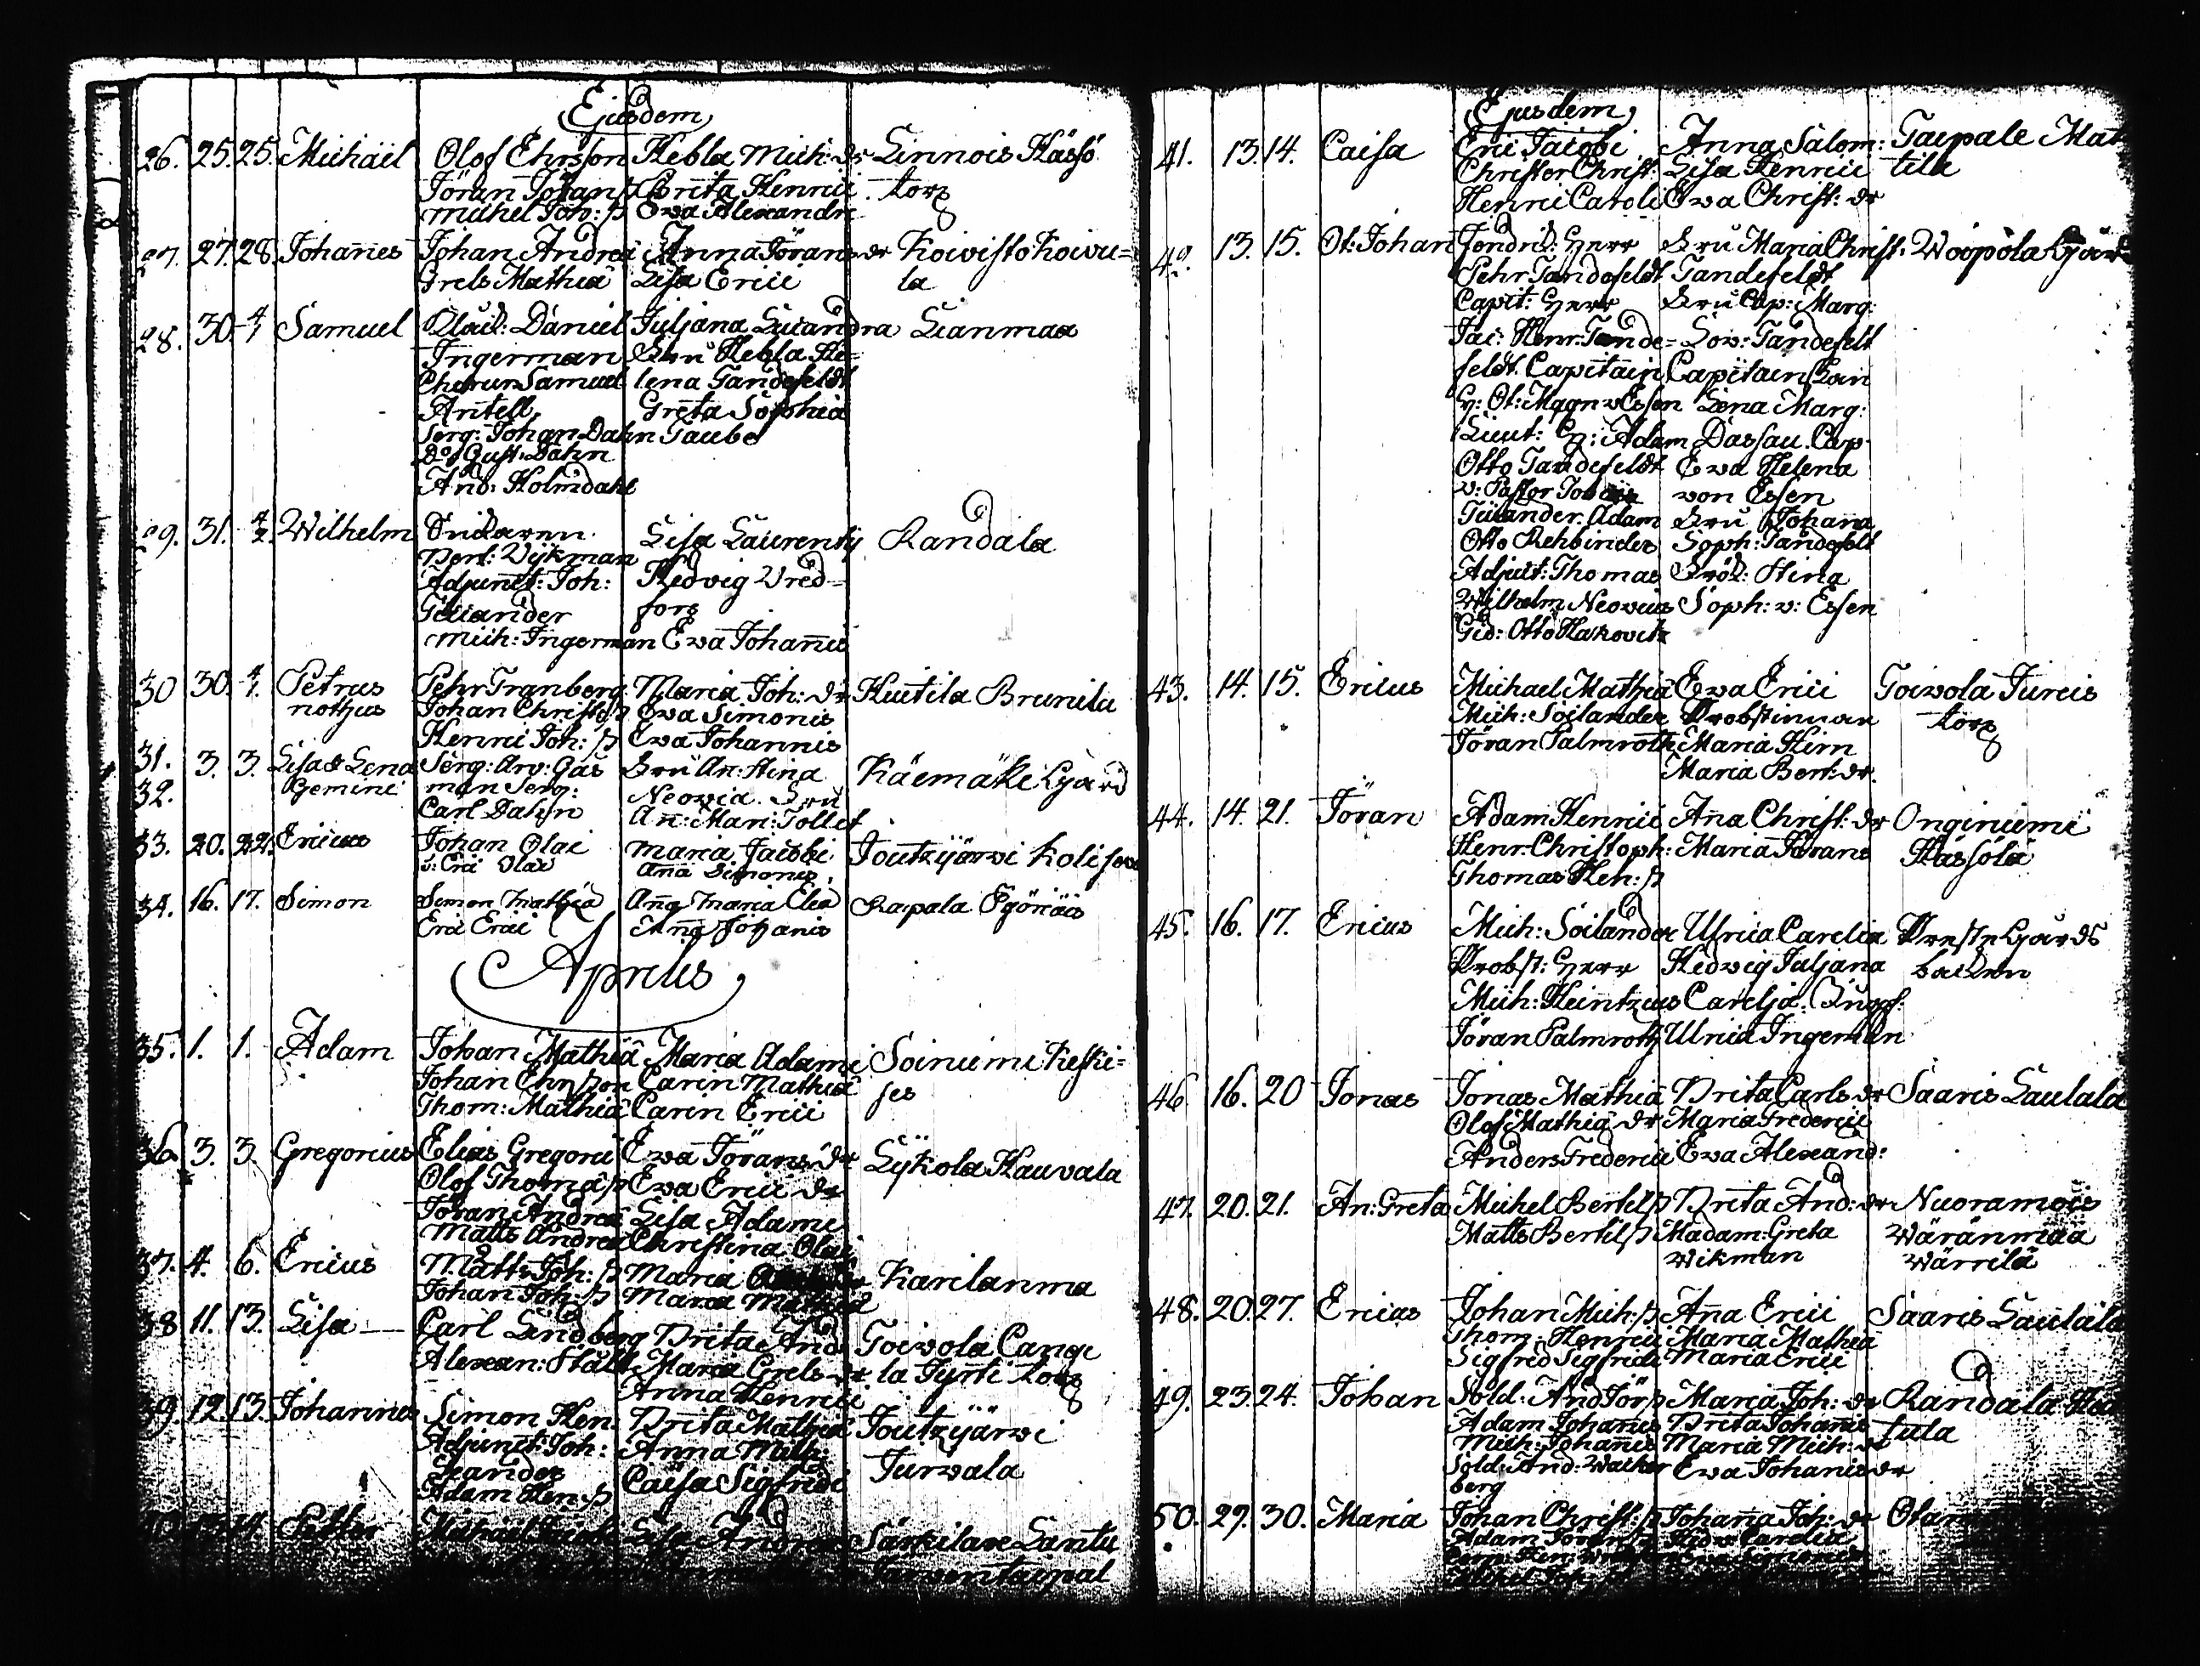 Ejusdem
26. 25. 25. Michäel Olof Ehrsson Hebla Mich: dr Linnois Hässö
Jöran Johans Brita Henrici torp
Michel Joh: Ewa Alexandri
27. 27. 28. Johannes Johan Andreæ Anna Jörans dr Koivisto Koivu=
Grels Mathiæ Lisa Erici la
28. 30. 4/1 Samuel Daniel Juljana Lucandra Lianmaa
Ingerman Fru Hebla He=
Samuel lena Tandefeldt
Antell Greta Sophia
Serg: Johan Dahn Taube
Do Gust: Dahn
And: Holmdahl
29. 31. 4/2. Wilhelm Lisa Laurentij Randala
Wijkman
Adjunct: Joh: Hedvig Vred=
fors
Mich: Ingerman Ewa Johannis
30 30. 4/1. Petrus Pehr Granberg Maria Joh: dr Huitila Brunila
nothus Johan Christ Ewa Simonis
Henric Joh: Ewa Johannis
31. 3. 3. Lisa & Lena Serg: Arv: Gås Fru An: Stina Käemäki Gård
32. Gemini man Serg: Neovia. Fru
Carl Dahn An: Mar: Tollet
33. 20. 22. Ericus Johan Olai Maria Jacobi Joutzijärvi
Olai Anna Simonis
34. 16. 17. Simon Simon Mathiæ Anna Maria Eliæ Rapala
Eric Erici Anna Johanis
Aprilis
35. 1. 1. Adam Johan Mathiæ Maria Adami Soiniemi Keski=
Johan Ehrsson Carin Mathiæ ses
Thom: Mathiæ Carin Erici
36. 3. 3. Gregorius Elias Gregorii Ewa Jörans dr Lykola Hauvala
Olof Thomæ Ewa Erici dr
Jöran Andreæ Lisa Adami
Matts Andreæ Christina Olai
37. 4. 6. Ericus Matts Joh: Maria Karilanma
Johan Joh: Maria Mathiæ
38 11. 13. Lisa Carl Lindberg Brita And Toivola Cange
Alexan: Ståhl Maria Grels dr la torp
Anna Henrici
39. 12. 13. Johannes Simon Hen: Brita Mathiæ Joutzijärvi
Adjunct: Joh: Anna Matts
Caisa Sigfridi Turvala
Adam Hen:
14. Petter Lisa Andreæ Särkilax
Ejusdem
41. 13. 14. Caisa Eric Jacobi Anna Salom: Taipale Mat
Christer Christ: Lisa Henrici tila
Henric Caroli Ewa Christ: dr
42. 13. 15. Ot: Johan Fendric: Herr Fru Maria Christ: Woipola Gård
Pehr Tandefeldt Tandefeldt
Capit: Herr Fru Cap: Marg:
Jac: Henr: Tande= Lov: Tandefelt
feldt. Capitain Capitain
H: Ot: Magn v Essen Lena Marg:
Lieut: H: Adam Dassau. Cap
Otto Tandefeldt Ewa Helena
v: Pastor von Essen
Adam Fru Johana
Otto Rehbinder Soph: Tandefelt
Adjuct: Thomas Frök: Stina
Wilhelm Neovius Soph: v: Essen
Otto Hakovitz
43. 14. 15. Ericus Michael Mathiæ Ewa Erici Toivola Juncis
Mich: Soilander Probstinnan torp
Jöran Palmroth Maria Hirn
Maria Bert: dr.
44. 14. 21. Jöran Adam Henrici Ana Christ: dr Onginiemi
Henr: Christoph: Maria Jörans Hassölä
Thomas Hen:
45. 16. 17. Ericus Mich: Soilander Ulrica Carelia PrestnGårds
Probst: Herr Hedvig Juljana backen
Mich: Heintzius Carelia: Jungf:
Jöran Palmroth Ulrica Ingerman
46 16. 20 Jonas Jonas Mathiæ Brita Carls dr Saaris Laulala
Olof Mathiæ dr Maria Frederici
Anders Frederici Ewa Alexand:
47. 20. 21. An: Greta Michel Bertils Brita And: dr Nuoramois
Matts Bertils Madam: Greta Wäränmaa
Wikman Wärrilä
48. 20. 27. Ericus Johan Mich: Ana Erici Saaris Laulala
Thom: Henrici Maria Mathiæ
Sigfred Sigfredi Maria Erici
49. 23. 24. Johan Sold: And Jör Maria Joh: dr Randala
Adam Johanis Brita Johanis tula
Mich: Johanis Maria Mich: dr
Sold: And: Wacker Ewa Johanis dr
berg
50. 29. 30. Maria Johan Christ: Johana Joh: dr
Adam Jörans Hedv: Carelia